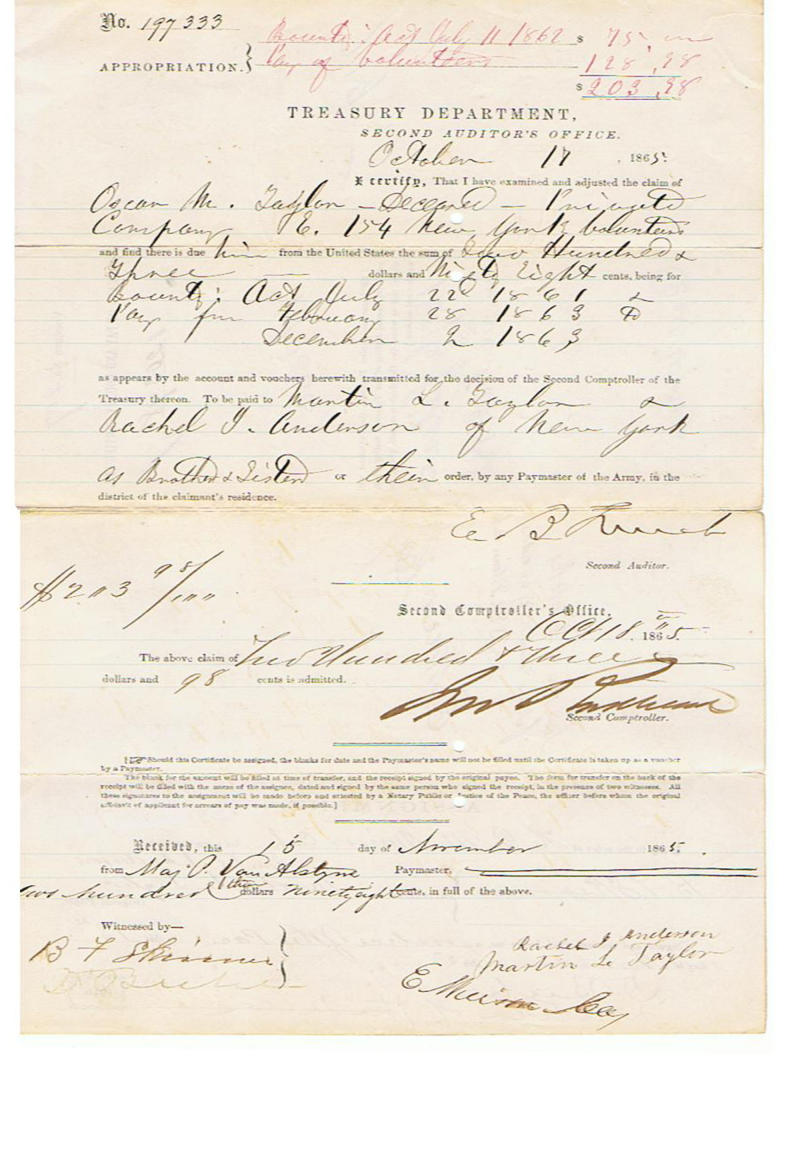 No. 197333
Bounty: Act July 11 1862 $ 75
APPROPRIATION. } Pay of Volunteers 128.98
$ 203.98
TREASURY DEPARTMENT,
SECOND AUDITOR'S OFFICE.
October 17, 1865.
I certify, That I have examined and adjusted the claim of
Oscar M. Taylor – Deceased – Private
Company E. 154 New York Volunteers
and find there is due him from the United States the sum of Two Hundred &
Three dollars and Ninety Eight cents, being for
Bounty: Act July 22d 1861 &
Pay from February 28 1863 to
December 2 1863
as appears by the account and vouchers herewith transmitted for the decision of the Second Comptroller of the
Treasury thereon. To be paid to Martin L. Taylor &
Rachel J. Anderson of New York
as Brother & Sister or their order, by any Paymaster of the Army, in the
district of the claimant's residence.
E B French
Second Auditor.
$203 98/100
Second Comptroller's Office,
Oct 18, 1865.
The above claim of Two Hundred & three
dollars and 98 cents is admitted.
Second Comptroller.
Should this Certificate be assigned, the blanks for date and the Paymaster's name will not be filled until the Certificate is taken up as a voucher
by a Paymaster.
The blank for the amount will be filled at time of transfer, and the receipt signed by the original payee. The form for transfer on the back of the
receipt will be filled with the name of the assignee, dated and signed by the same person who signed the receipt, in the presence of two witnesses. All
these signatures to the assignment will be made before and attested by a Notary Public or Justice of the Peace, the officer before whom the original
affidavit of applicant for arrears of pay was made, if possible.]
Received, this 15 day of November 1865.
from Maj P. Van Alstyne Paymaster,
Two hundred three dollars Ninety eight cents, in full of the above.
Witnessed by—
Rachel J Anderson
B F Skinner
Martin L Taylor